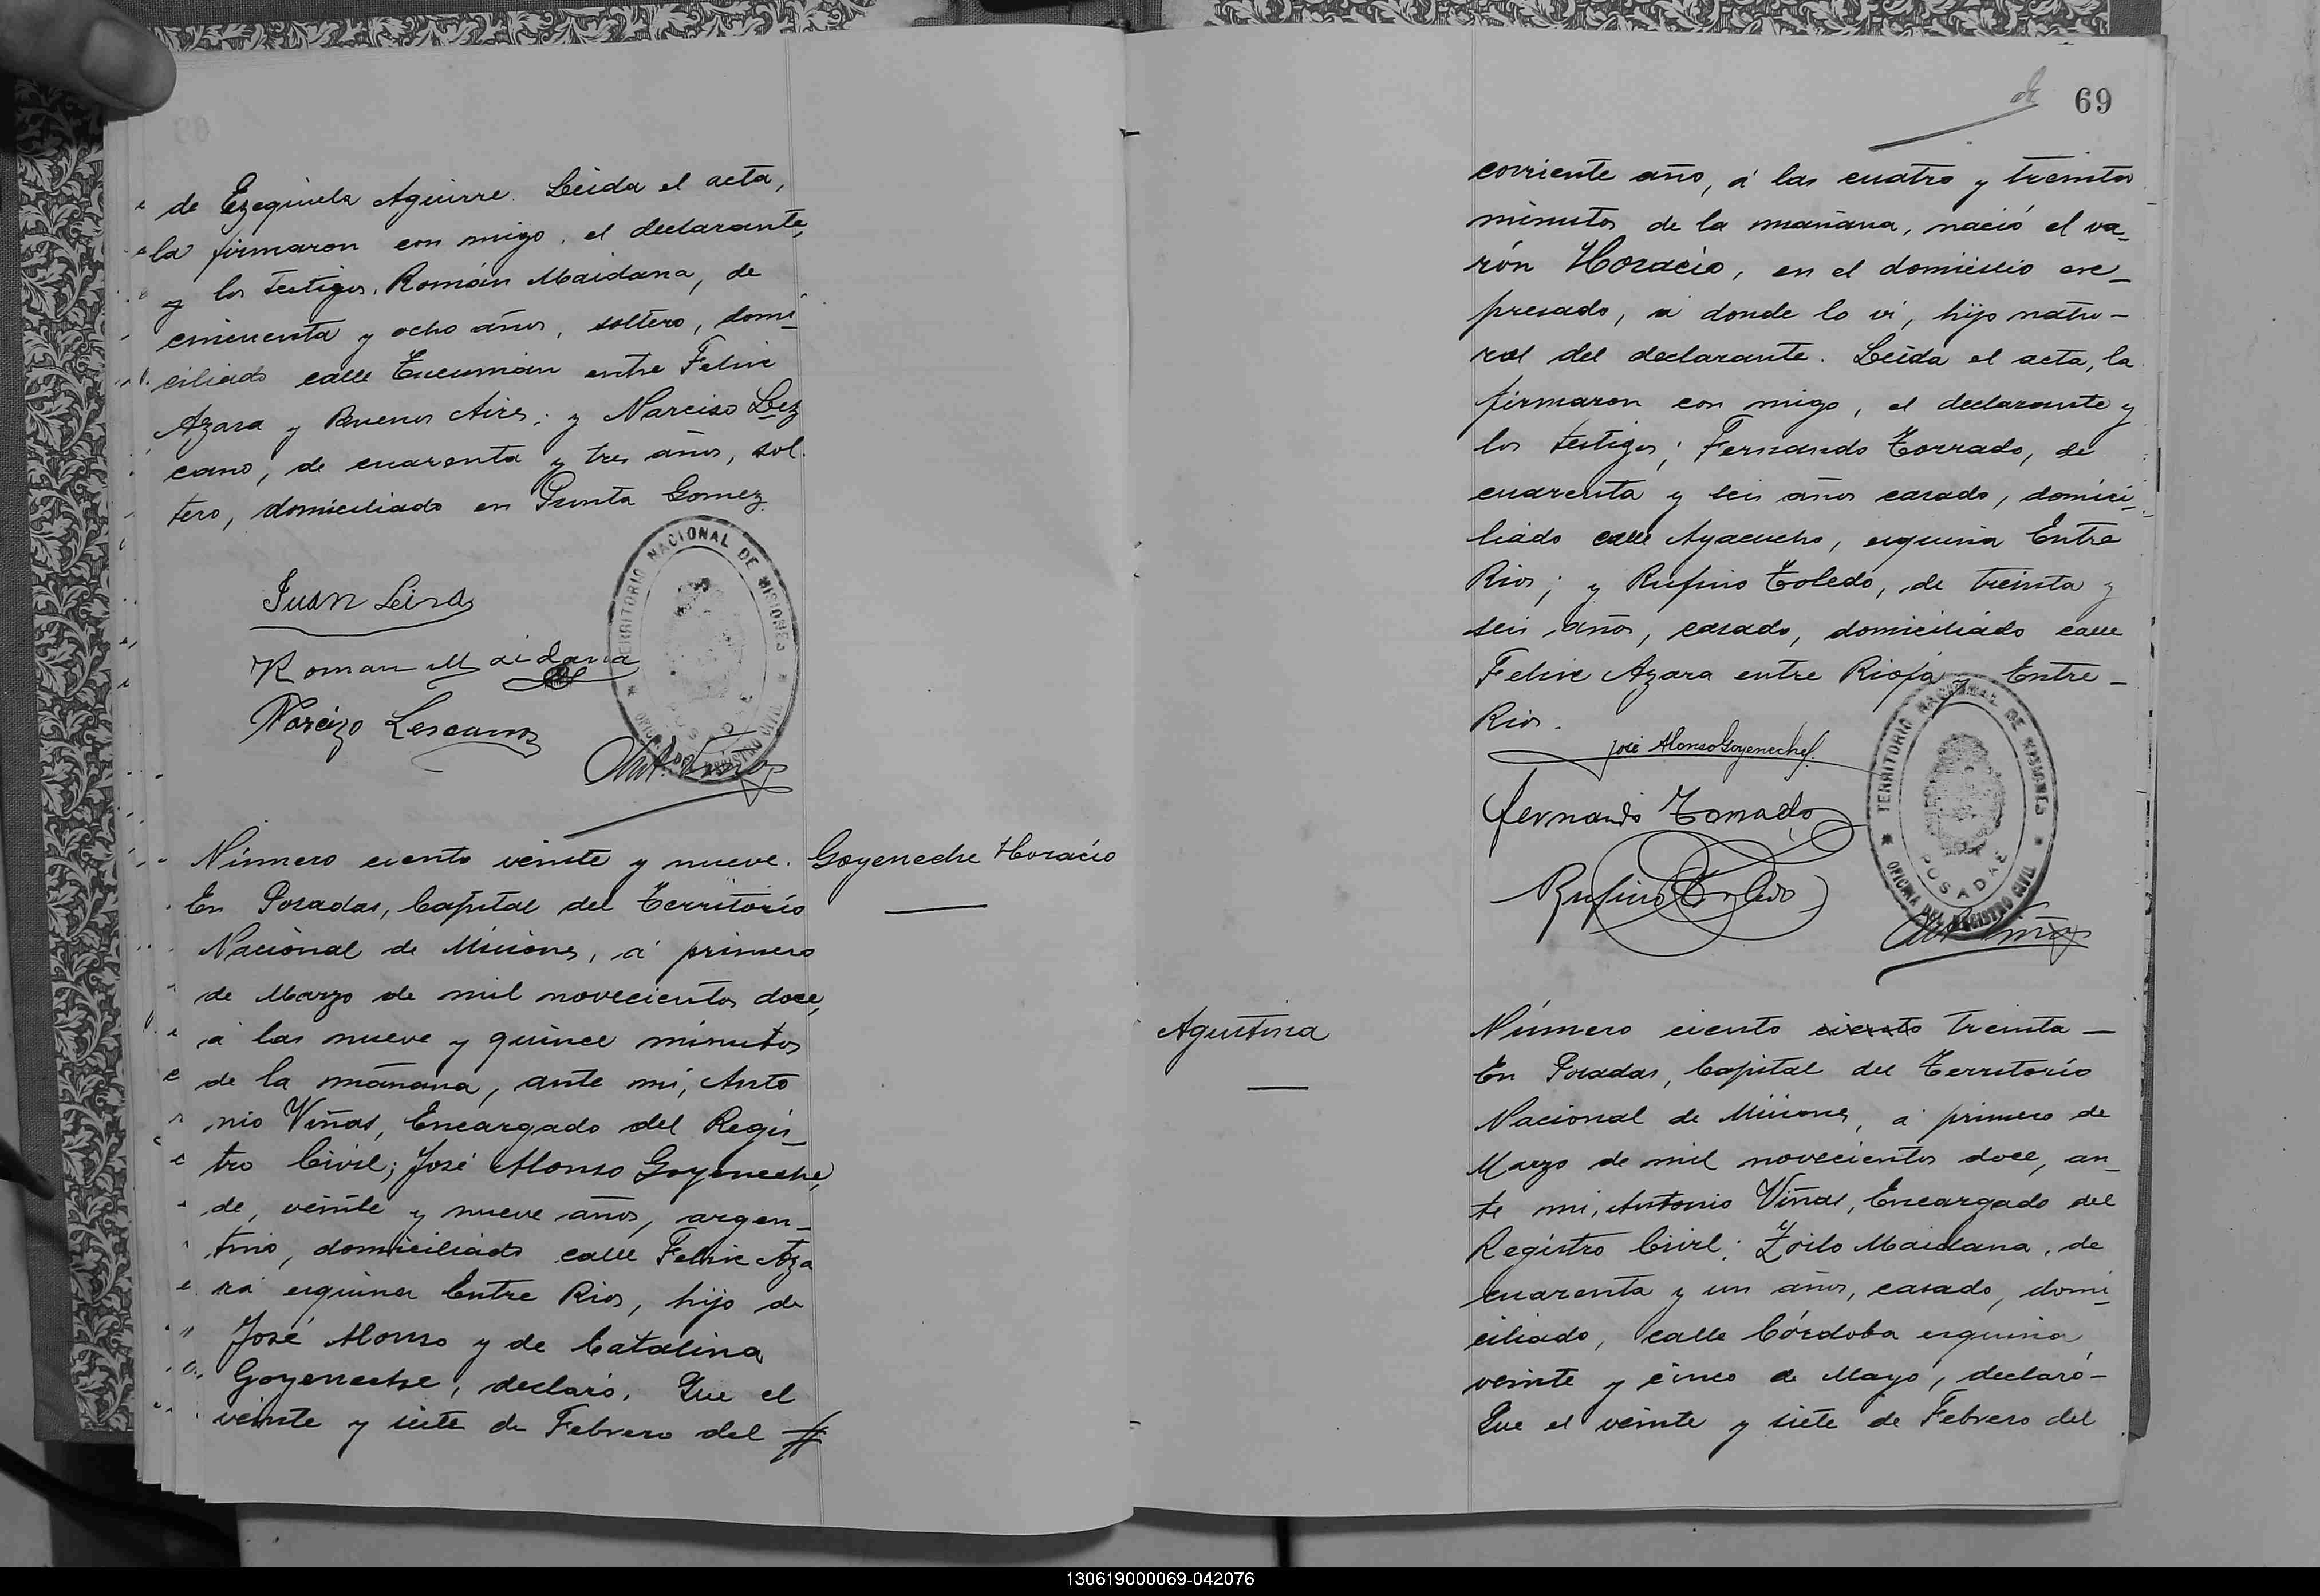 de Ezequiela Aguirre. Leida el acta,
la firmaron con migo, el declarante,
y los testigos, Román Maidana, de
cincuenta y ocho años, soltero, domi-
ciliado calle Tucumán entre Felix
Azara y Buenos Aires; y Narciso Lez
cano, de cuarenta y tres años, sol-
tero, domiciliado en Punta Gomez.
TERRITORIO NACIONAL DE MISIONES
OFICINA DEL REGISTRO CIVIL
POSADAS
Juan Leiva
Roman Maidana
Narcizo Lescano
Número ciento veinte y nueve.
Goyeneche Horacio
En Posadas, Capital del Territorio
Nacional de Misiones, á primero
de Marzo de mil novecientos doce,
á las nueve y quince minutos
de la mañana, ante mi, Anto
nio Viñas, Encargado del Regis-
tro Civil; José Alonso Goyeneche,
de, veinte y nueve años, argen-
tino, domiciliado calle Felix Aza
ra esquina Entre Rios, hijo de
José Alonso y de Catalina
Goyeneche, declaró, Que el
veinte y siete de Febrero del #
69
corriente año, á las cuatro y treinta
minutos de la mañana, nació el va-
rón Horacio, en el domicilio ex-
presado, á donde lo vi, hijo natu-
ral del declarante. Leida el acta, la
firmaron con migo, el declarante y
los testigos; Fernando Torrado, de
cuarenta y seis años casado, domici-
liado calle Ayacucho, esquina Entre
Rios; y Rufino Toledo, de treinta y
seis años, casado, domiciliado calle
Felix Azara entre Rioja y Entre-
Rios.
José Alonso Goyeneche
Fernando Torrado
Rufino Toledo
TERRITORIO NACIONAL DE MISIONES
POSADAS
OFICINA DEL REGISTRO CIVIL
Agustina
Número ciento ciento treinta-
En Posadas, Capital del Territorio
Nacional de Misiones, á primero de
Marzo de mil novecientos doce, an-
te mi, Antonio Viñas, Encargado del
Registro Civil; Zoilo Maidana, de
cuarenta y un años, casado, domi-
ciliado, calle Córdoba esquina,
veinte y cinco de Mayo, declaró-
Que el veinte y siete de Febrero del
130619000069-042076